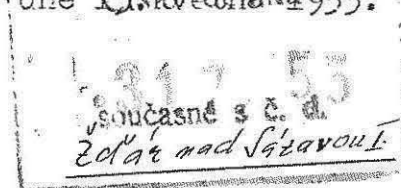 dne 1955.
31 7 55
současně s č. d.
Žďár nad Sázavou I.